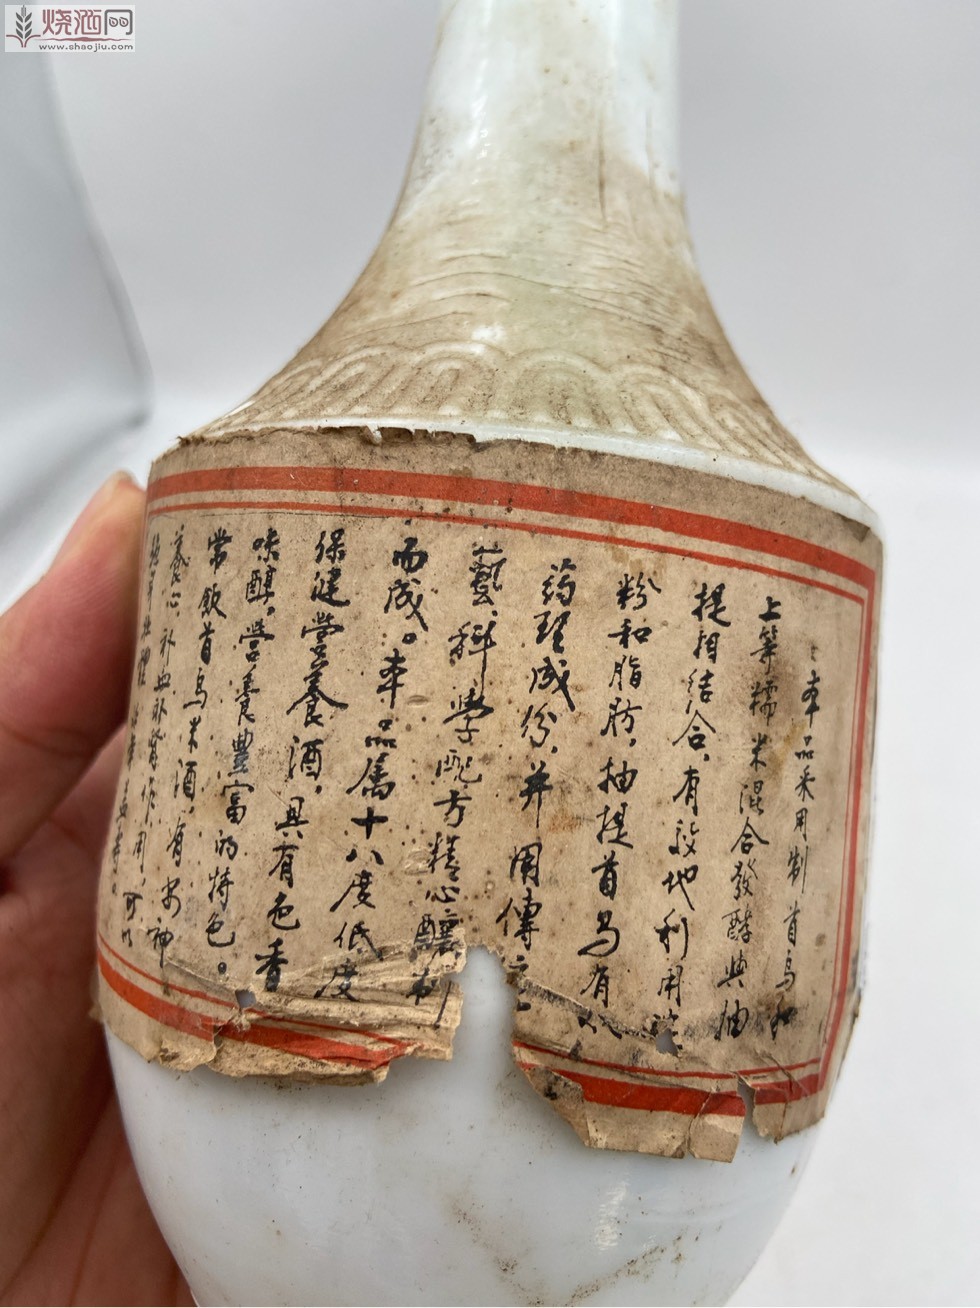 烧酒网
www.shaojiu.com
本品采用制首乌和
上等糯米混合發酵與抽
提相结合，有效地利用
粉和脂肪，抽提首乌有
药理成份，并用傳
藝，科學配方精心釀制
而成。本品属十八度低度
保健营养酒，具有色香
味醇，营養豐富的特色。
常飲首乌米酒，有安神
養心、补血补腎作用，可以
益寿。